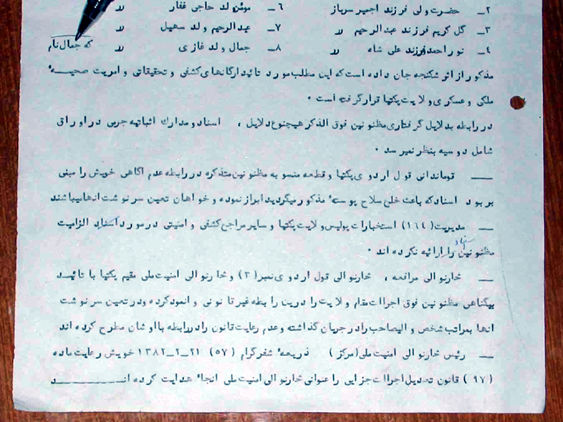 ۲ـ حضرت ولی فرزند اجمیر سرباز ۶ـ موئن ولد حاجی غفار رر
۳ـ گل کریم فرزند عبدالرحیم رر ۷ـ عبدالرحیم ولد سهیل رر
۴ـ نور احمد فرزند علی شاه رر ۸ـ جمال ولد غازی رر که جمال نام
مذکور از اثر شکنجه جان داده است که این مطلب مورد تائید ارگانهای کشفی و تحقیقاتی و امریت صحیه
ملکی و عسکری ولایت پکتیا قرار گرفته است .
در رابطه به دلایل گرفتاری مظنونین فوق الذکر هیچنوع دلایل ، اسناد و مدارک اثباتیه جرمی در اوراق
شامل دوسیه بنظر نمیرسد .
ــ قوماندانی قول اردوی پکتیا و قطعه منسوبه مظنونین متذکره در رابطه عدم آگاهی خویش را مبنی
بر بود اسنادیکه باعث خلع سلاح پوسته مذکور میگردید ابراز نموده و خواهان تعیین سرنوشت آنها میباشند
ــ مدیریت (۱۱۴) استخبارات پولیس ولایت پکتیا و سایر مراجع کشفی و امنیتی در مورد اسناد الزامیت
مظنونین را ارائه نکرده اند .
ــ خارنوالی مرافعه ، خارنوالی قول اردوی نمبر (۳) و خارنوالی امنیت ملی مقیم پکتیا با تائید
بیگناهی مظنونین فوق اجراات مقام ولایت را درین رابطه غیر قانونی وانمود کرده و در تعیین سرنوشت
آنها بمراتب شخص والیصاحب را در جریان گذاشته و عدم رعایت قانون را در رابطه با اوشان مطرح کرده اند
ــ رئیس خارنوالی امنیت ملی (مرکز) ذریعه شفر گرام (۵۷) ۲۱ـ۲ـ۱۳۸۲ خویش رعایت ماده
(۹۷) قانون تعدیل اجراات جزایی را عنوانی خارنوالی امنیت ملی آنجا هدایت کرده اند